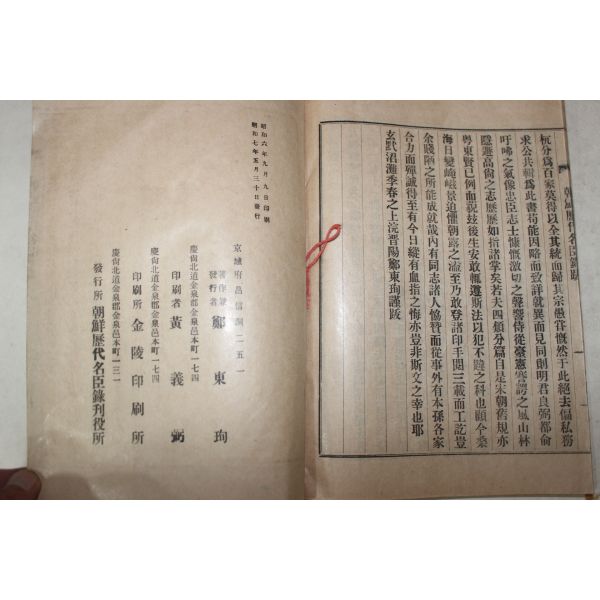 朝鮮歷代名臣錄跋
杭分爲百家莫得以全其統而歸其宗愚甞慨然于此絕去偏私務
求公共輯爲此書苟能因略而致詳就異而見同則明君良弼都兪
吁咈之氣像忠臣志士慷慨激切之聲響侍從臺憲謇諤之風山林
隱遯高尙之志歷歷如指諸掌矣若夫四類分篇自是宋朝舊規亦
粤東賢已例而祝玆後生安敢輒遵斯法以犯不韙之科也顧今桑
海日變崦嵫景迫懼朝露之溘至乃敢登諸印手閱三載而工訖豈
余賤陋之所能成就哉內有同志諸人協贊而從事外有本孫各家
合力而殫誠得至有今日縱有血指之悔亦豈非斯文之幸也耶
玄黓涒灘季春之上浣晋陽鄭東珣謹跋
昭和六年九月九日印刷
昭和七年五月三十日發行
京城府昌信洞二五一
著作兼發行者 鄭東珣
慶尙北道金泉郡金泉邑本町一七四
印刷者 黃義弼
慶尙北道金泉郡金泉邑本町一七四
印刷所 金陵印刷所
慶尙北道金泉郡金泉邑本町一三一
發行所 朝鮮歷代名臣錄刋役所